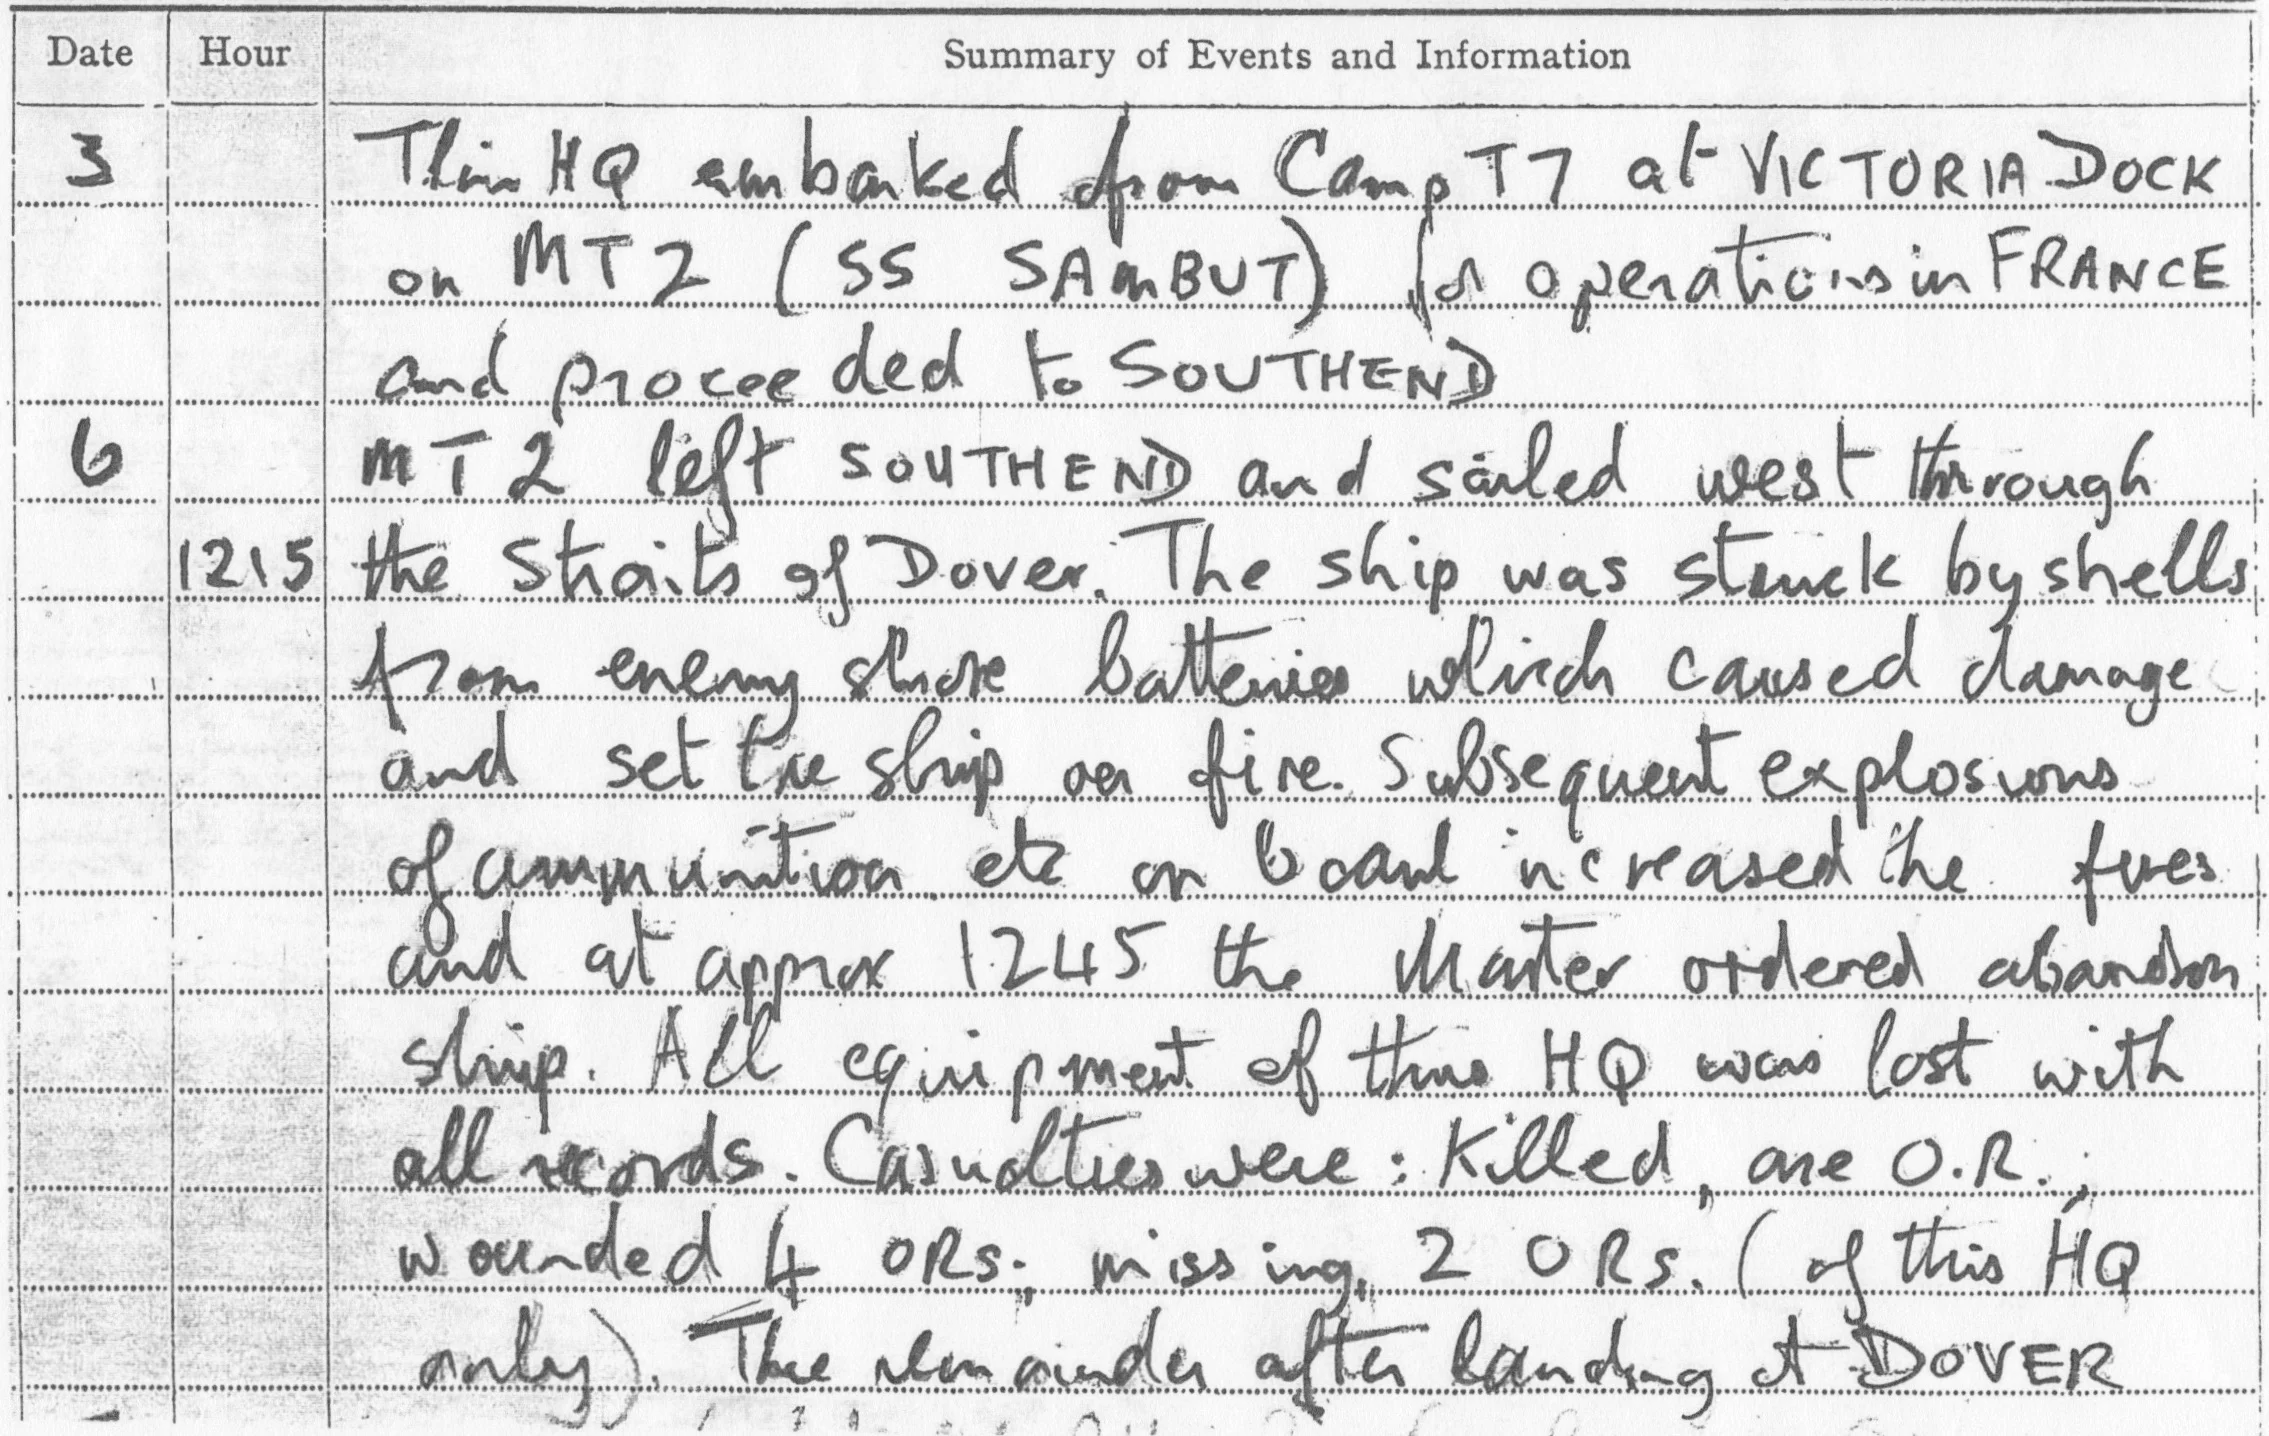 Date Hour Summary of Events and Information
3 This HQ embarked from Camp T7 at VICTORIA DOCK
on MT2 (SS SAMBUT) for operations in FRANCE
and proceeded to SOUTHEND
6 MT2 left SOUTHEND and sailed west through
1215 the Straits of Dover. The ship was struck by shells
from enemy shore batteries which caused damage
and set the ship on fire. Subsequent explosions
of ammunition etc on board increased the fires
and at approx 1245 the Master ordered abandon
ship. All equipment of this HQ was lost with
all records. Casualties were: Killed, one O.R.;
wounded 4 ORs; missing, 2 ORs. (of this HQ
only). The remainder after landing at DOVER